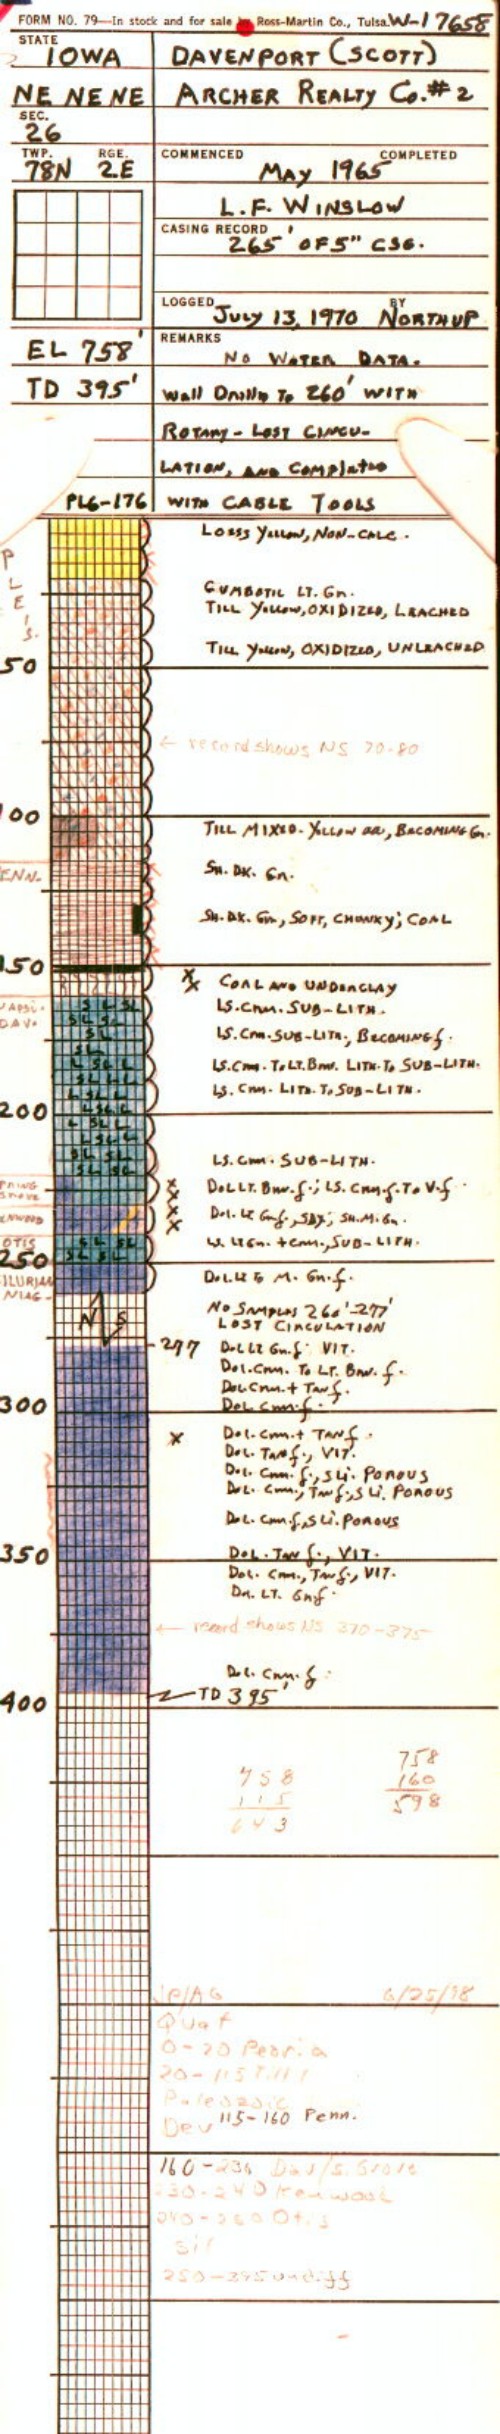 FORM NO. 79—In stock and for sale by Ross-Martin Co., Tulsa. W-17658
STATE
IOWA
DAVENPORT (SCOTT)
NE NE NE
ARCHER REALTY Co. #2
SEC.
26
TWP. RGE.
78N 2E
COMMENCED COMPLETED
MAY 1965
L.F. WINSLOW
CASING RECORD
265' OF 5" CSG.
LOGGED BY
JULY 13, 1970 NORTHUP
EL 758'
REMARKS
NO WATER DATA.
TD 395'
Well Drilled To 260' WITH
ROTARY - LOST CIRCU-
LATION, AND COMPLETED
PLG-176
WITH CABLE TOOLS
PLEIS.
LOESS YELLOW, NON-CALC.
GUMBOTIL LT. Gn.
TILL YELLOW, OXIDIZED, LEACHED
TILL YELLOW, OXIDIZED, UNLEACHED
50
← record shows NS 70-80
100
TILL MIXED - YELLOW aa, BECOMING Gn.
ENN.
SH. DK. Gn.
SH. DK. Gn, SOFT, CHUNKY; COAL
150
x
x COAL AND UNDERCLAY
LS. CRM. SUB-LITH.
DAV.
LS. CRM. SUB-LITH., BECOMING f.
LS. CRM. TO LT. BRN. LITH. TO SUB-LITH.
LS. CRM. LITH. TO SUB-LITH.
200
LS. CRM. SUB-LITH.
PRING
GROVE
DOL LT. BRN. f.; LS. CRM. f. TO V.f.
ENWOOD
DOL. LT Gn f., SDY; SH. M. Gn.
OTIS
LS. LT Gn. + CRM., SUB-LITH.
250
SILURIAN
NIAG-
DOL. LT TO M. Gn. f.
N S
NO SAMPLES 260'-277'
LOST CIRCULATION
277 DOL LT Gn. f. VIT.
DOL. CRM. TO LT. BRN. f.
DOL CRM. + TAN f.
DOL CRM. f.
300
x DOL. CRM. + TAN f.
DOL. TAN f., VIT.
DOL. CRM. f., SLI. POROUS
DOL. CRM., TAN f., SLI. POROUS
DOL. CRM. f., SLI. POROUS
350
DOL. TAN f., VIT.
DOL. CRM., TAN f., VIT.
LT. Gn f.
← record shows NS 370-375
DOL. CRM. f.
TD 395'
400
758 758
115 160
643 598
JP/AG 6/25/98
Quat
0-20 Peoria
20-115 Till
Paleozoic
Dev 115-160 Penn.
160-230 Dav/S. Grove
230-240 Kenwood
240-250 Otis
Sil
250-395 undiff